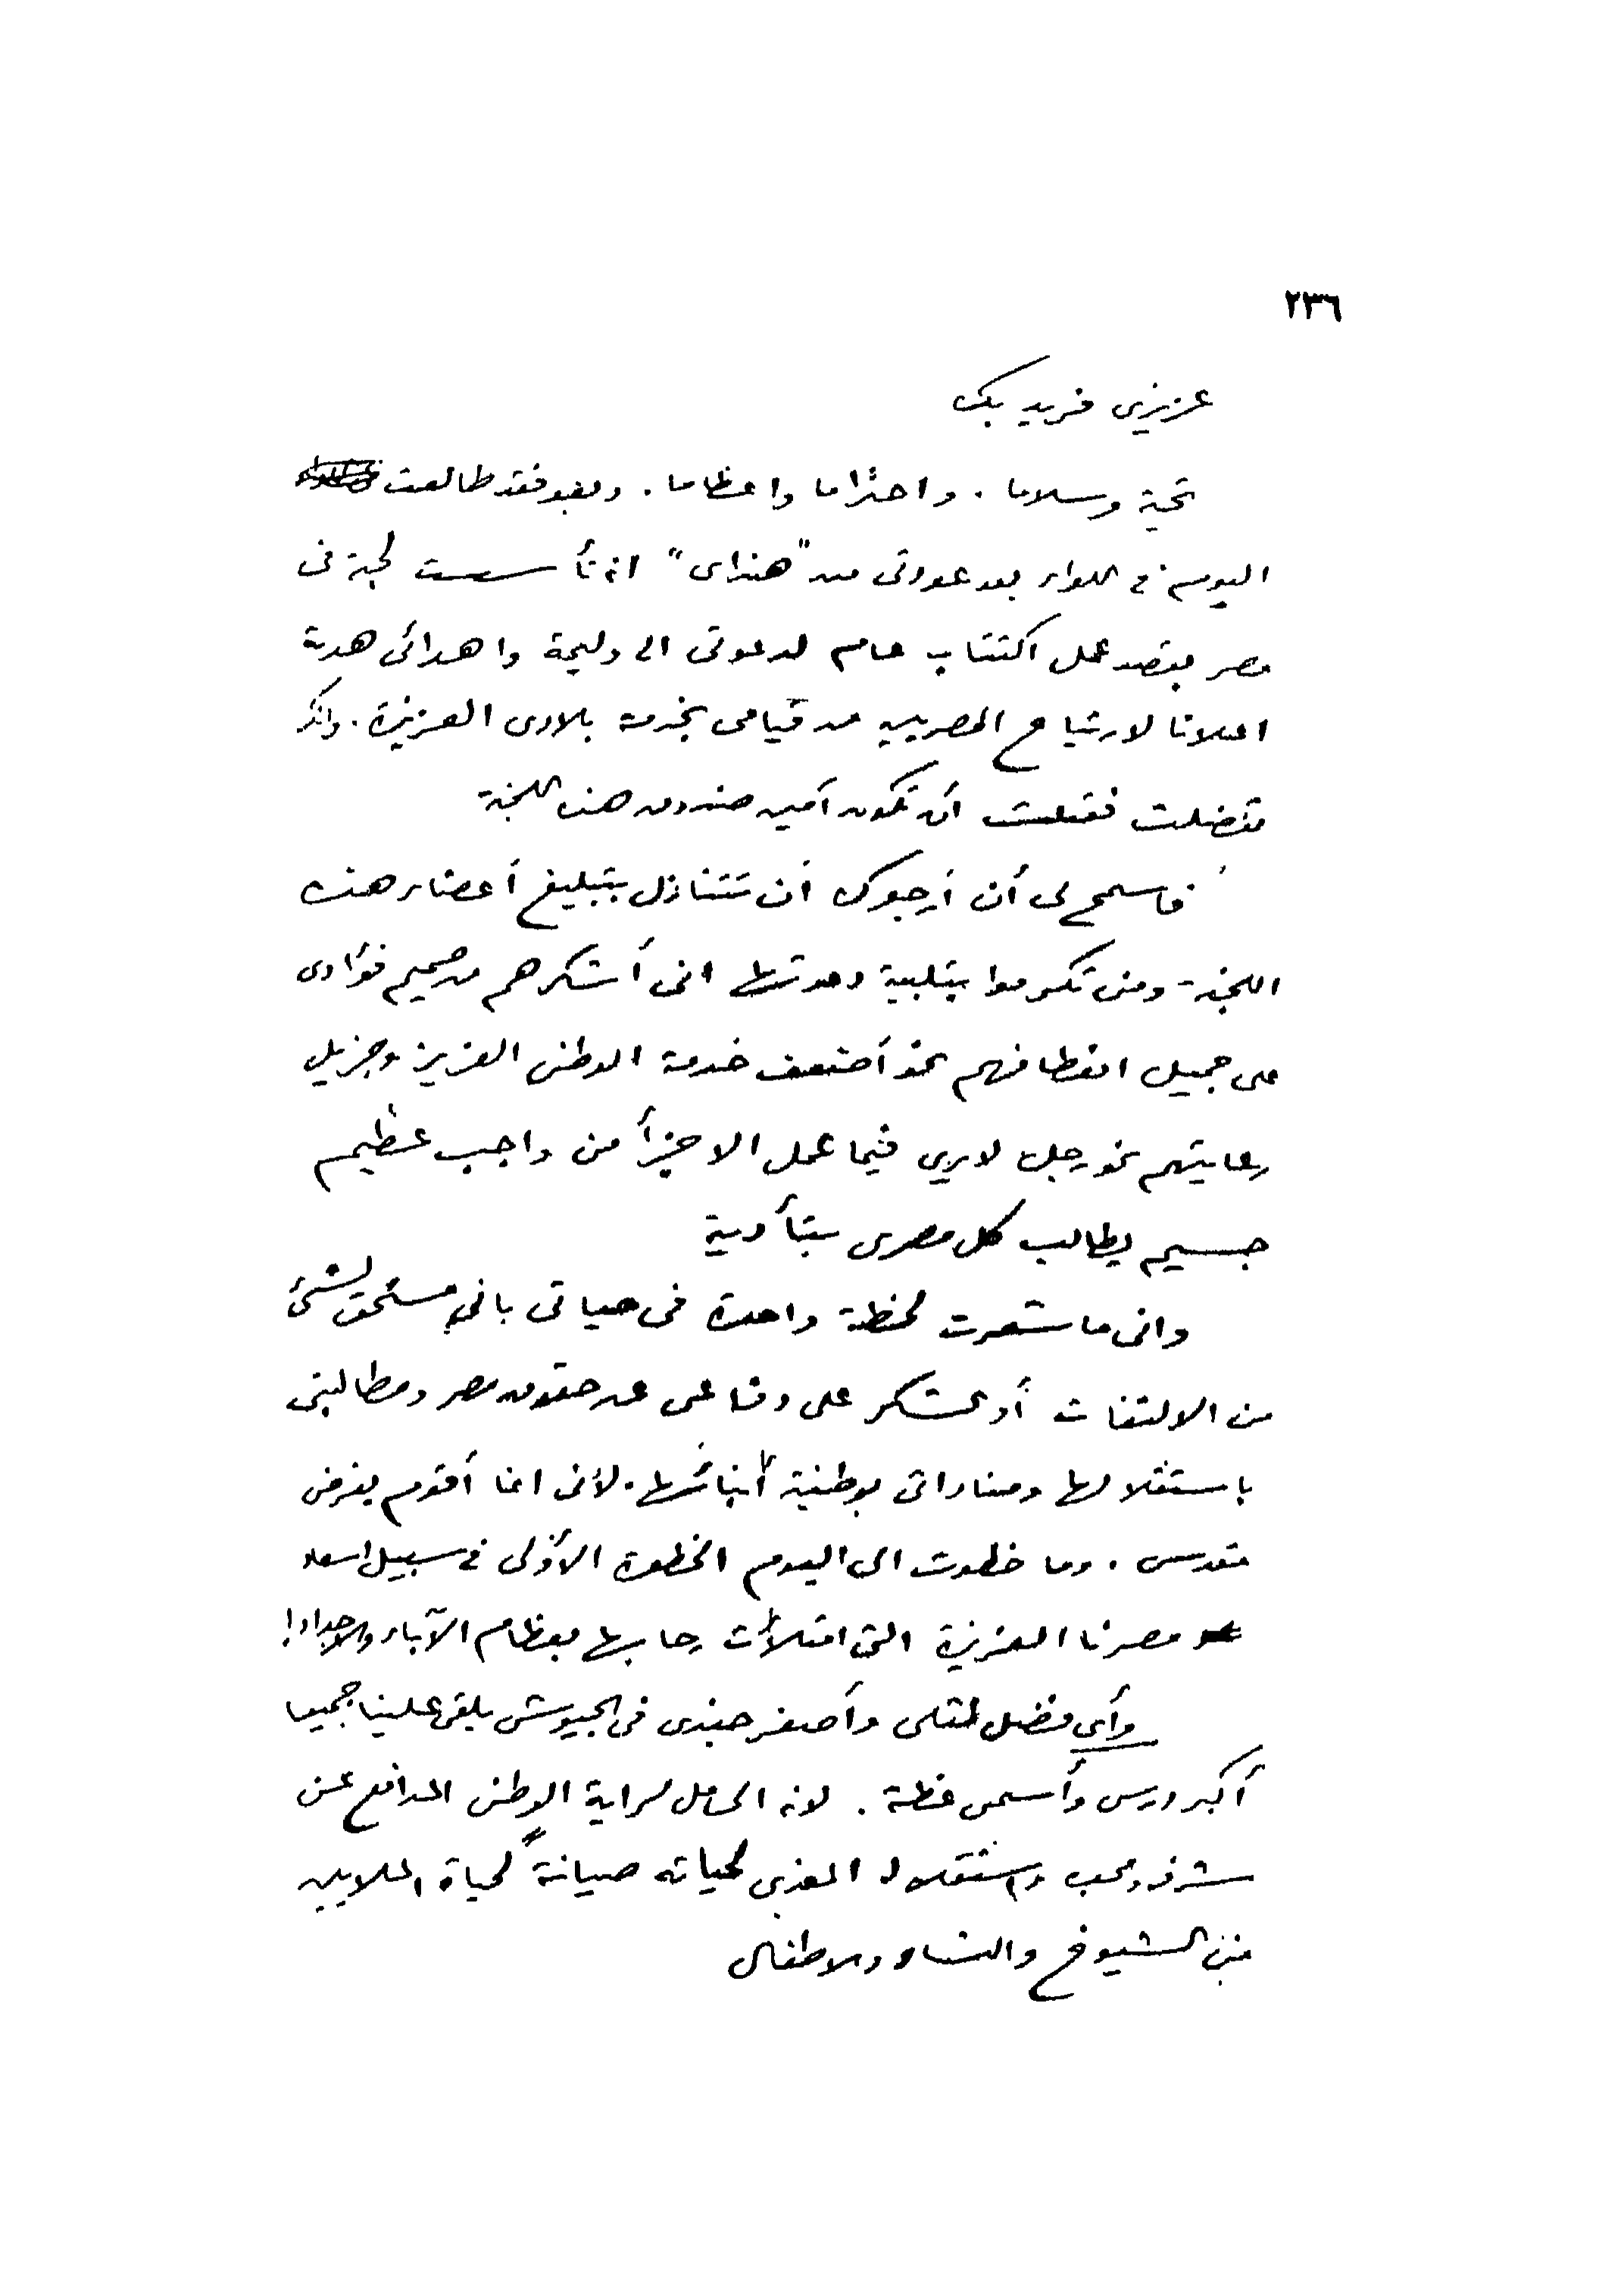 ٢٣٦
عزيزى فريد بك
تحية وسلاما . واحتراما واعظاما . وبعد فقد طالعت
اليوم فى اللواء بعد عودتى من "هنداى" انه تأسست لجنة فى
مصر بقصد عمل اكتتاب عام لدعوتى الى وليمة واهدائى هدية
اعلانا لارتياح المصريين من قيامى بخدمة بلادى العزيزة . وانكم
تفضلت فقبلت أن تكون أمين صندوق هذه اللجنة
فاسمح لى أن أرجوك أن تتنازل بتبليغ أعضاء هذه
اللجنة ومن تكرموا بتلبية دعوتها انى أشكرهم من صميم فؤادى
على جميل انعطافهم نحو أضعف خدمة الوطن العزيز وجزيل
رعايتهم نحو رجل لا يرى فيما عمل الا جزأ من واجب عظيم
جسيم يطالب كل مصرى بتأدية
وانى ما شعرت لحظة واحدة فى حياتى بانى مستحق لشئ
من الالتفات أو الشكر على دفاعى عن حقوق مصر ومطالبتى
باستقلالها ومناداتى بوطنية أبنائها . لأنى انما أقوم بفرض
مقدس . وما خطوت الى اليوم الخطوة الأولى فى سبيل اسعاد
مصرنا العزيزة التى امتلأت رحابها بعظام الآباء والاجداد !
وأى فضل لمثلى وأصغر جندى فى الجيوش يلقى علينا جميعا
أكبر درس وأسمى عظة . لانه الحامل لراية الوطن المدافع عن
شرفه ومحب واستقلاله المفدى لحياته صيانةً لحياة الملايين
من الشيوخ والنساء والاطفال